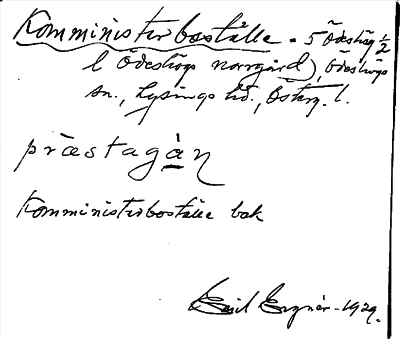 Komministerboställe - 5 Ödeshög 1/2
l Ödeshögs norrgård), Ödeshögs
sn., Lysings hd., Österg. l.
præstagàɳ
Komministerboställe bak
Emil 1929.